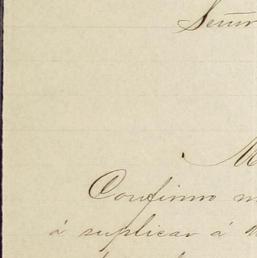 Señor
M
Confirmo m
á suplicar á